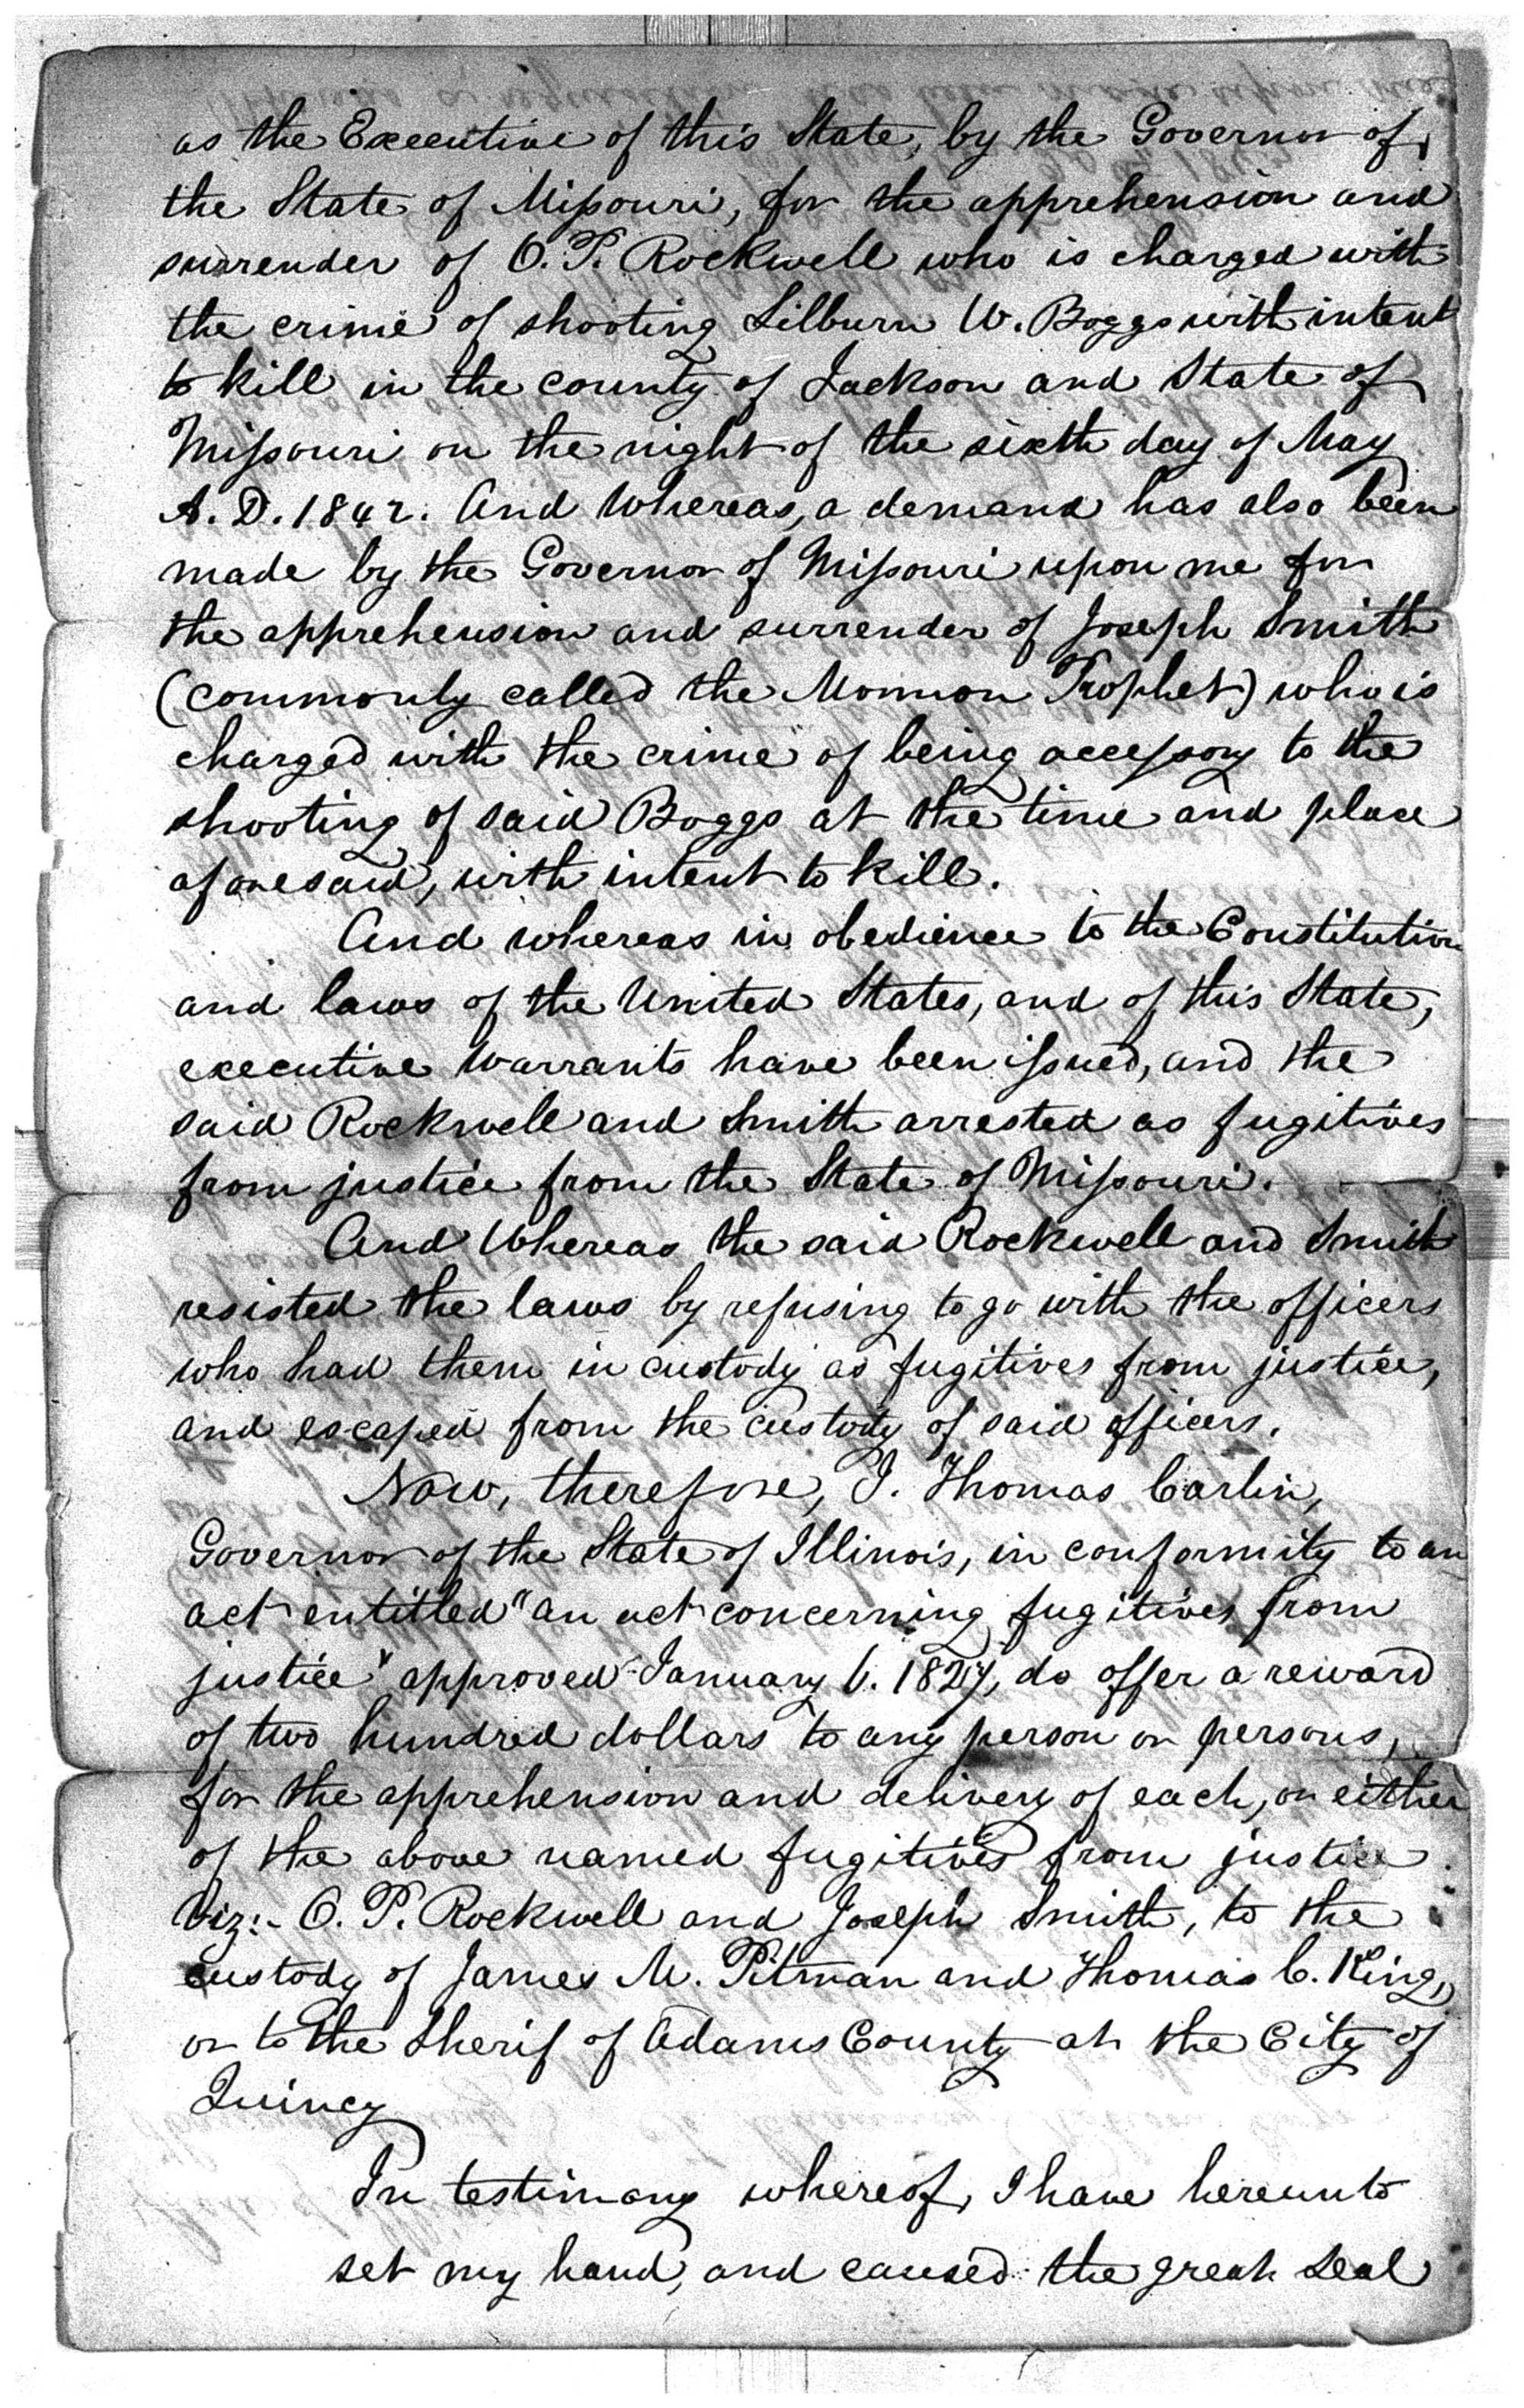 as the Executive of this State, by the Governor of
the State of Missouri, for the apprehension and
surrender of O. P. Rockwell who is charged with
the crime of shooting Lilburn W. Boggs with intent
to kill in the county of Jackson and State of
Missouri on the night of the sixth day of May
A. D. 1842. And Whereas, a demand has also been
made by the Governor of Missouri upon me for
the apprehension and surrender of Joseph Smith
(commonly called the Mormon Prophet) who is
charged with the crime of being accessory to the
shooting of said Boggs at the time and place
aforesaid, with intent to kill.
And whereas in obedience to the Constitution
and laws of the United States, and of this State,
executive warrants have been issued, and the
said Rockwell and Smith arrested as fugitives
from justice from the State of Missouri.
And Whereas the said Rockwell and Smith
resisted the laws by refusing to go with the officers
who had them in custody as fugitives from justice,
and escaped from the custody of said officers.
Now, therefore, I. Thomas Carlin,
Governor of the State of Illinois, in conformity to an
act entitled "an act concerning fugitives from
justice" approved January 6. 1827, do offer a reward
of two hundred dollars to any person or persons,
for the apprehension and delivery of each, or either
of the above named fugitives from justice
Viz:- O. P. Rockwell and Joseph Smith, to the
custody of James M. Pitman and Thomas C. King,
or to the Sherif of Adams County at the City of
Quincy
In testimony whereof, I have hereunto
set my hand, and caused the great Seal